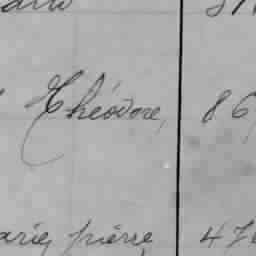 Théodore, 86
arie, pierre, 47